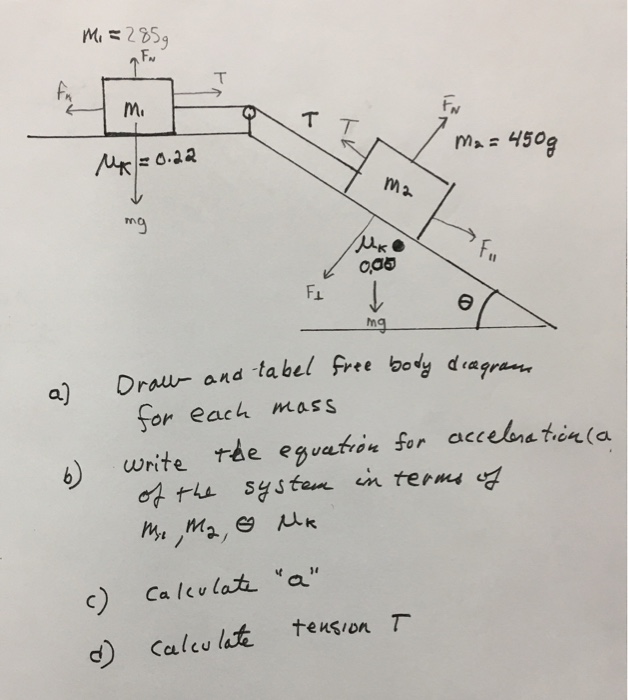 M₁ = 285g
F_N
T
F_k
M₁
μ_K = 0.22
mg
T
T
F_N
M₂ = 450g
M₂
F_∥
μ_K
F_⊥
mg
θ
a) Draw and label free body diagram
for each mass
b) write the equation for acceleration (a
of the system in terms of
M₁, M₂, θ μ_K
c) Calculate "a"
d) Calculate tension T